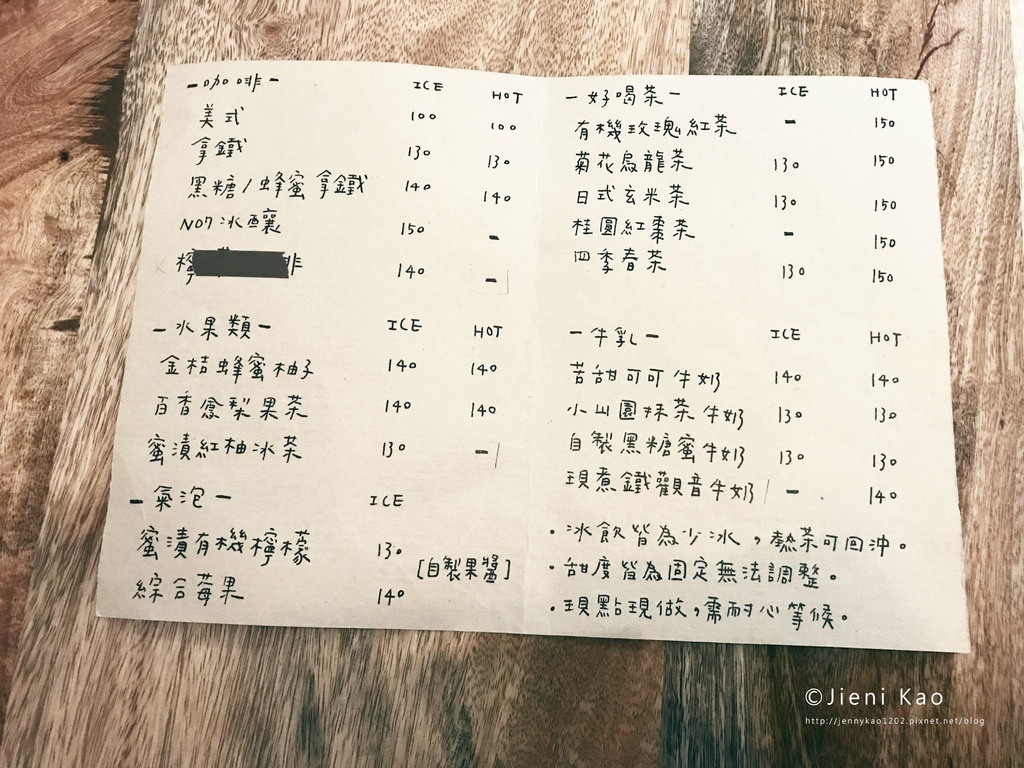 －咖啡－ ICE HOT
美式 100 100
拿鐵 130 130
黑糖/蜂蜜拿鐵 140 140
NO7冰釀 150 -
檸 啡 140 -
－水果類－ ICE HOT
金桔蜂蜜柚子 140 140
百香鳳梨果茶 140 140
蜜漬紅柚冰茶 130 -
－氣泡－ ICE
蜜漬有機檸檬 130
[自製果醬]
綜合莓果 140
－好喝茶－ ICE HOT
有機玫瑰紅茶 - 150
菊花烏龍茶 130 150
日式玄米茶 130 150
桂圓紅棗茶 - 150
四季春茶 130 150
－牛乳－ ICE HOT
苦甜可可牛奶 140 140
小山園抹茶牛奶 130 130
自製黑糖蜜牛奶 130 130
現煮鐵觀音牛奶 - 140
・冰飲皆為少冰，熱茶可回沖。
・甜度皆為固定無法調整。
・現點現做，需耐心等候。
©Jieni Kao
http://jennykao1202.pixnet.net/blog